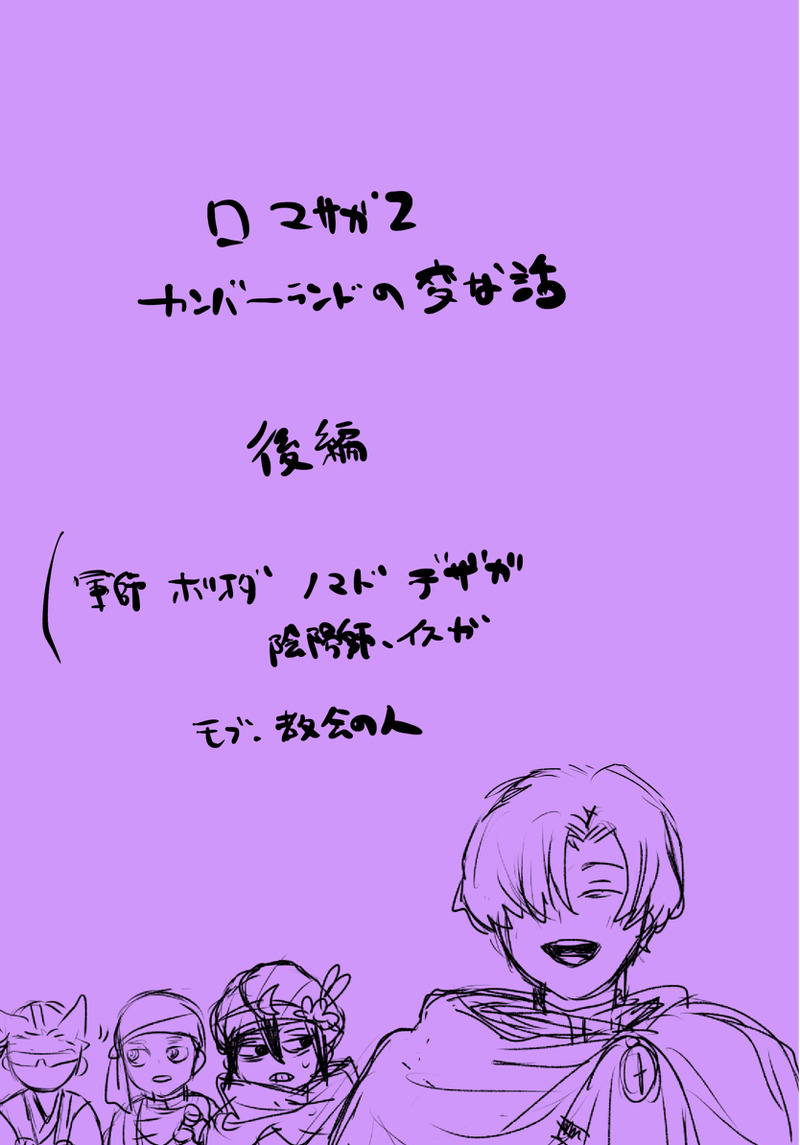 ロマサガ2
カンバーランドの変な話
後編
(軍師 ホリオダ ノマド デザガ
陰陽師、イスガ
モブ、教会の人